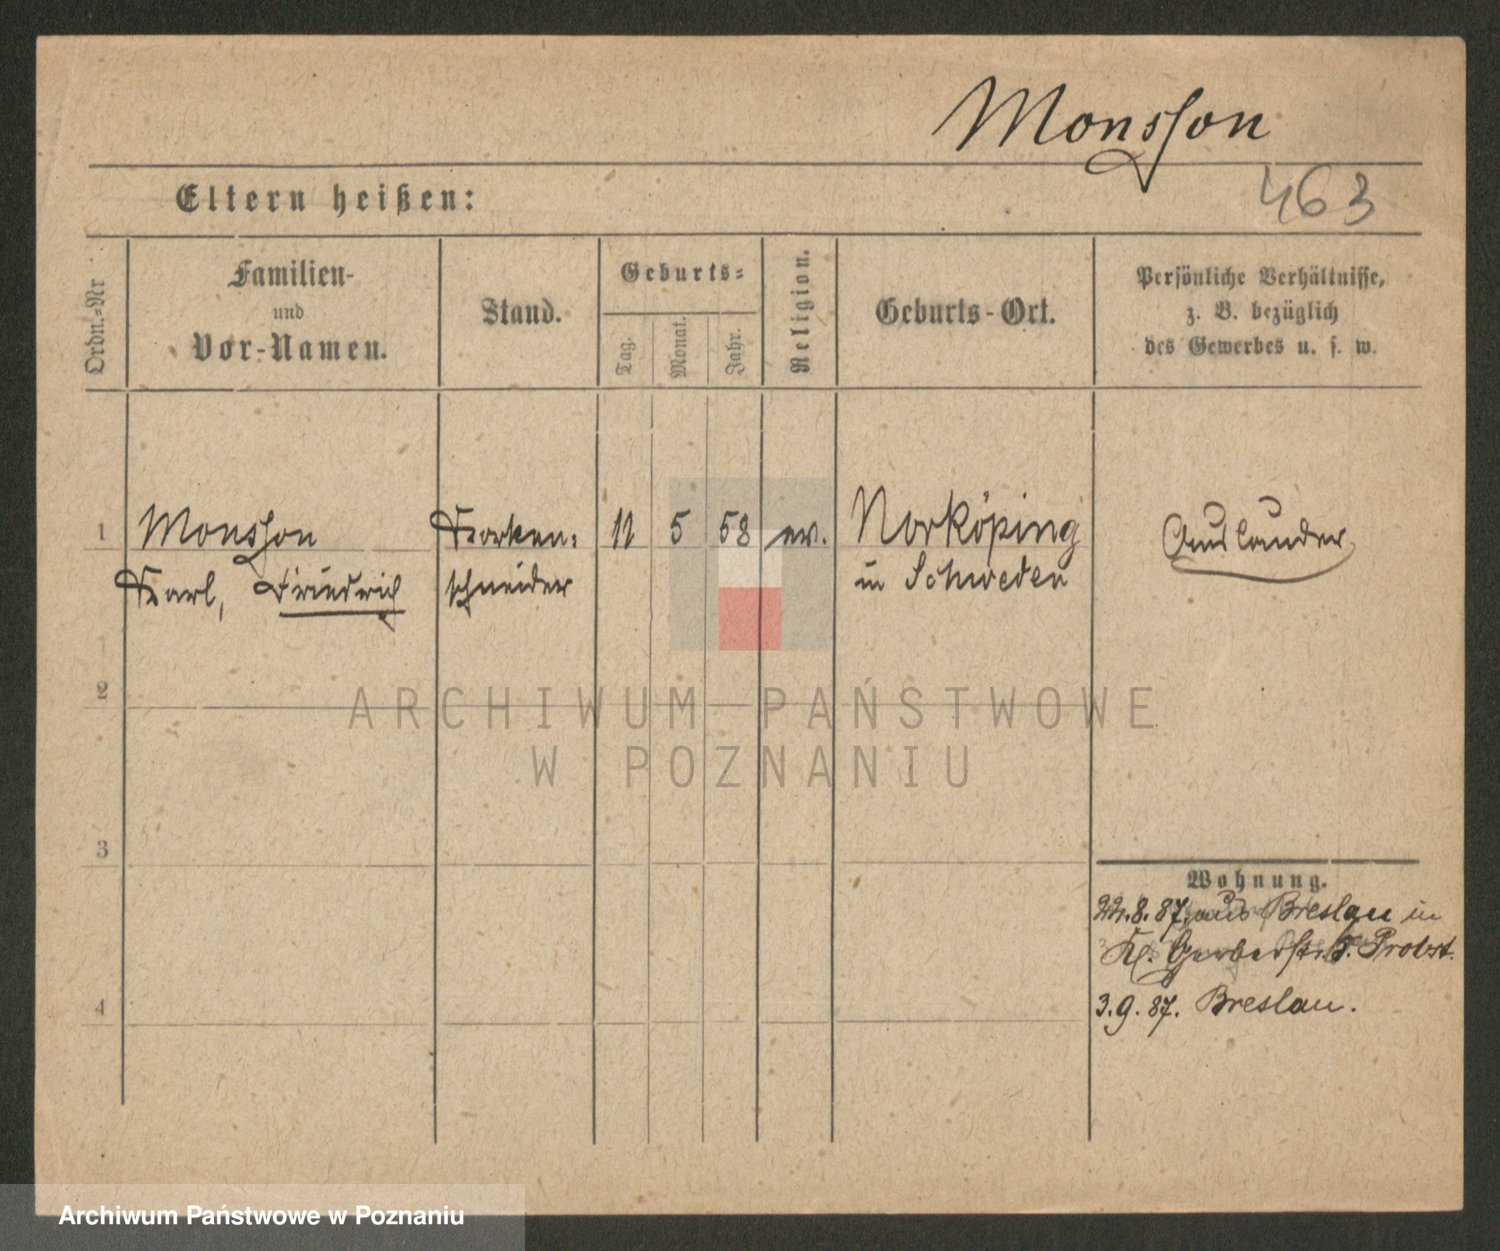 Monsson
463
Eltern heißen:
Ordn.-Nr
Familien-
und
Vor-Namen.
Stand.
Geburts-
Tag.
Monat.
Jahr.
Religion.
Geburts-Ort.
Persönliche Verhältnisse,
z. B. bezüglich
des Gewerbes u. s. w.
1
Monsson
Karl, Friedrich
Korken-
schneider
11 5 58 ev.
Norköping
in Schweden
Ausländer
2
ARCHIWUM PAŃSTWOWE
W POZNANIU
3
Wohnung.
22.8.87. aus Breslau in
Kl. Gerberstr. b. Probst.
4
3.9.87. Breslau.
Archiwum Państwowe w Poznaniu